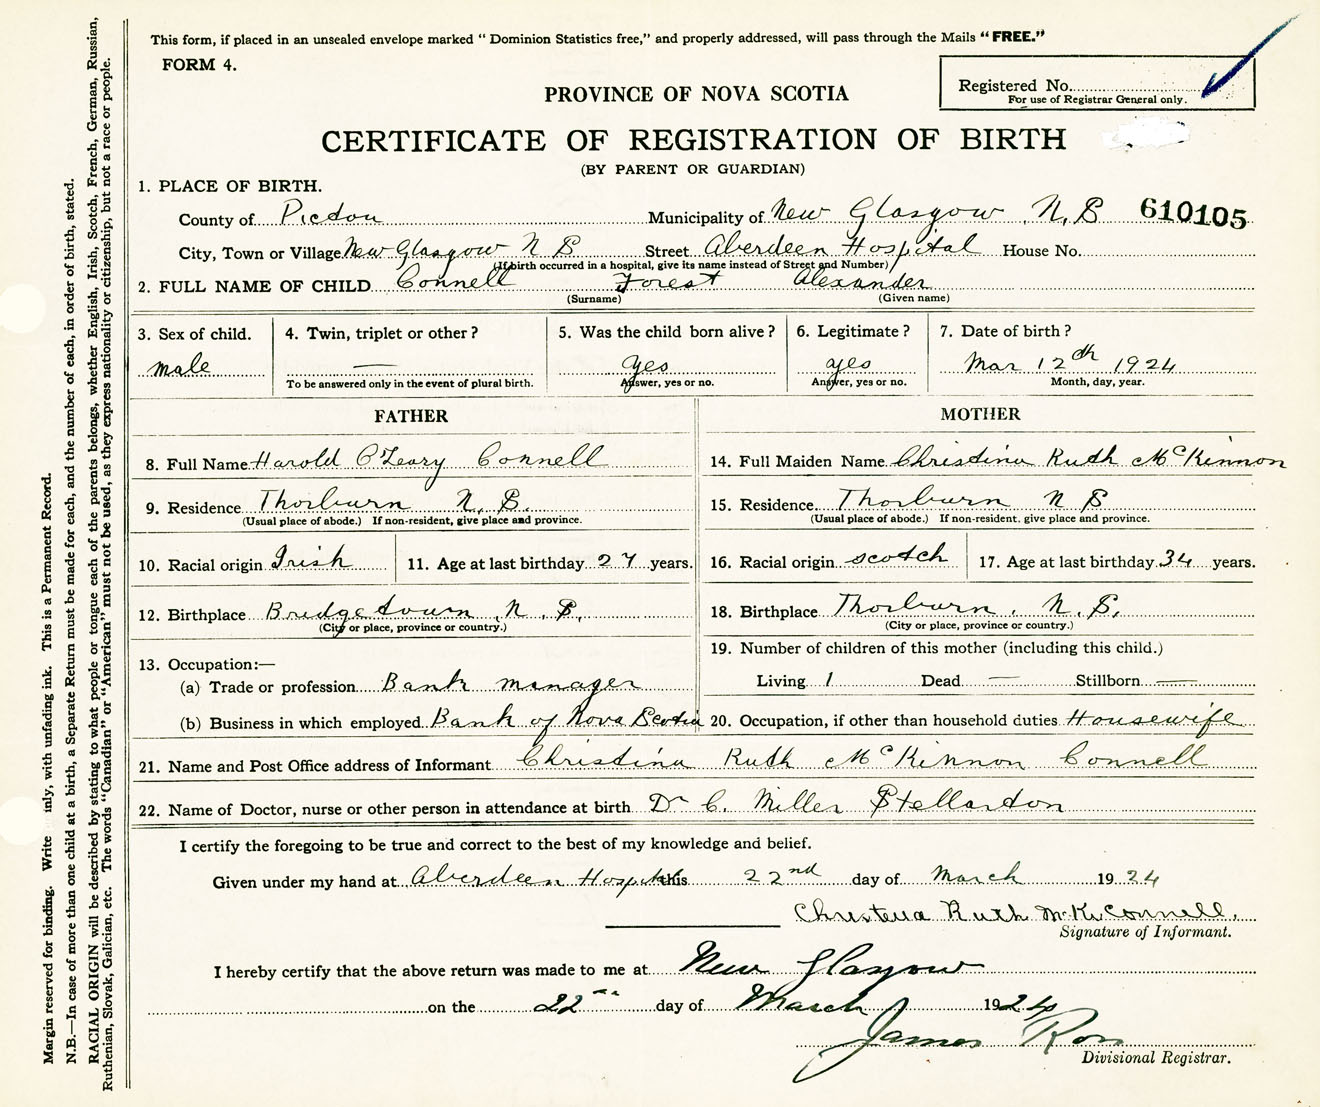 This form, if placed in an unsealed envelope marked "Dominion Statistics free," and properly addressed, will pass through the Mails "FREE."
FORM 4.
Registered No.
For use of Registrar General only.
PROVINCE OF NOVA SCOTIA
CERTIFICATE OF REGISTRATION OF BIRTH
(BY PARENT OR GUARDIAN)
1. PLACE OF BIRTH.
County of Pictou Municipality of New Glasgow N,S 610105
City, Town or Village New Glasgow N S Street Aberdeen Hospital House No.
(If birth occurred in a hospital, give its name instead of Street and Number)
2. FULL NAME OF CHILD Connell Forest Alexander
(Surname) (Given name)
3. Sex of child. 4. Twin, triplet or other? 5. Was the child born alive? 6. Legitimate? 7. Date of birth?
male — yes yes Mar 12th 1924
To be answered only in the event of plural birth. Answer, yes or no. Answer, yes or no. Month, day, year.
FATHER MOTHER
8. Full Name Harold O'Leary Connell 14. Full Maiden Name Christina Ruth McKinnon
9. Residence Thorburn N. S. 15. Residence Thorburn N S
(Usual place of abode.) If non-resident, give place and province. (Usual place of abode.) If non-resident. give place and province.
10. Racial origin Irish 11. Age at last birthday 27 years. 16. Racial origin scotch 17. Age at last birthday 34 years.
12. Birthplace Bridgetown N. S. 18. Birthplace Thorburn. N. S.
(City or place, province or country.) (City or place, province or country.)
13. Occupation:— 19. Number of children of this mother (including this child.)
(a) Trade or profession Bank manager Living 1 Dead — Stillborn —
(b) Business in which employed Bank of Nova Scotia 20. Occupation, if other than household duties Housewife
21. Name and Post Office address of Informant Christina Ruth McKinnon Connell
22. Name of Doctor, nurse or other person in attendance at birth Dr C. Miller Stellarton
I certify the foregoing to be true and correct to the best of my knowledge and belief.
Given under my hand at Aberdeen Hospital this 22nd day of March 1924
Christena Ruth McK. Connell.
Signature of Informant.
I hereby certify that the above return was made to me at New Glasgow
on the 22nd day of March 1924
James Ross
Divisional Registrar.
Margin reserved for binding. Write nly, with unfading ink. This is a Permanent Record.
N.B.—In case of more than one child at a birth, a Separate Return must be made for each, and the number of each, in order of birth, stated.
RACIAL ORIGIN will be described by stating to what people or tongue each of the parents belongs, whether English, Irish, Scotch, French, German, Russian,
Ruthenian, Slovak, Galician, etc. The words "Canadian" or "American" must not be used, as they express nationality or citizenship, but not a race or people.